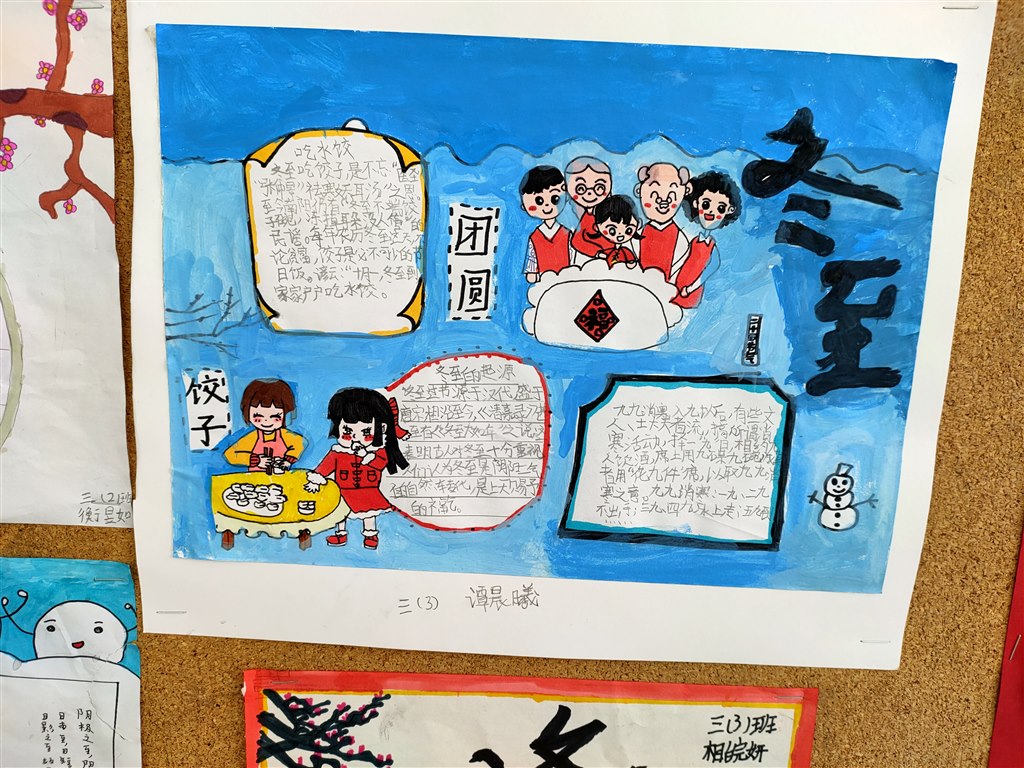 冬至
二十四节气
吃水饺
冬至吃饺子是不忘"医圣
张仲景""祛寒娇耳汤"之恩
民谣。每年农历冬至这天,不
论贫富,饺子是必不可少的节
日饭。谚云:"十月一,冬至到
家家户户吃水饺。
团
圆
福
饺
子
冬至的起源
冬至过节源于汉代,盛于
唐宋,相沿至今。《清嘉录》
至有"冬至大如年"之说。
表明古人对冬至十分重视。
人们认为冬至是阴阳二气
的自然转化,是上天赐予
的福气。
九九消寒入九以后,有些文
人、士大夫
寒活动,择一"九"日,相约九
人饮酒,席上用九碟九碗,
者用"花九件"席,以取九九消
寒之意。九九消寒:一九、二九
不出手;三九、四九冰上走;五九
三(3) 谭晨曦
三(2)班
衡昱如
阴极之至,阳
三(3)班
冬